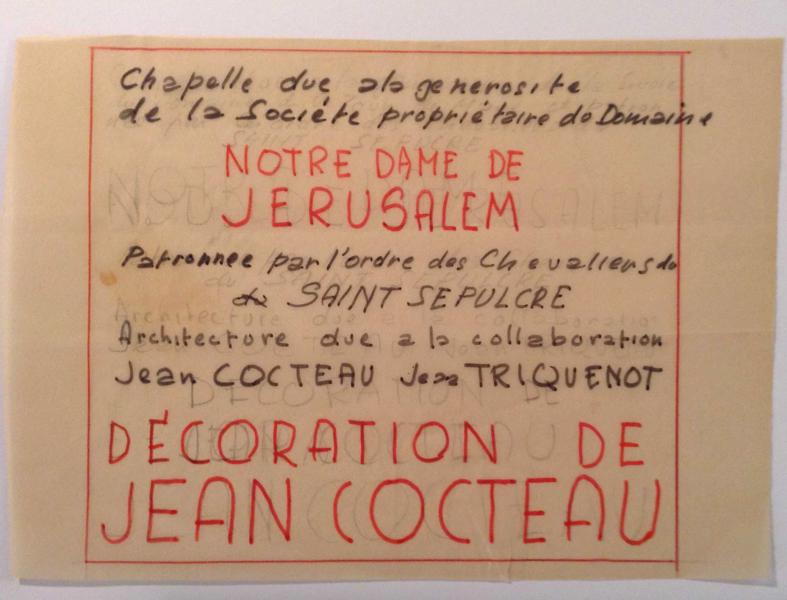 Chapelle due a la generosite
de la Société propriétaire do Domaine
NOTRE DAME DE
JERUSALEM
Patronnee par l'ordre des Chevaliers du
du SAINT SEPULCRE
Architecture due a la collaboration
Jean COCTEAU Jean TRIQUENOT
DÉCORATION DE
JEAN COCTEAU